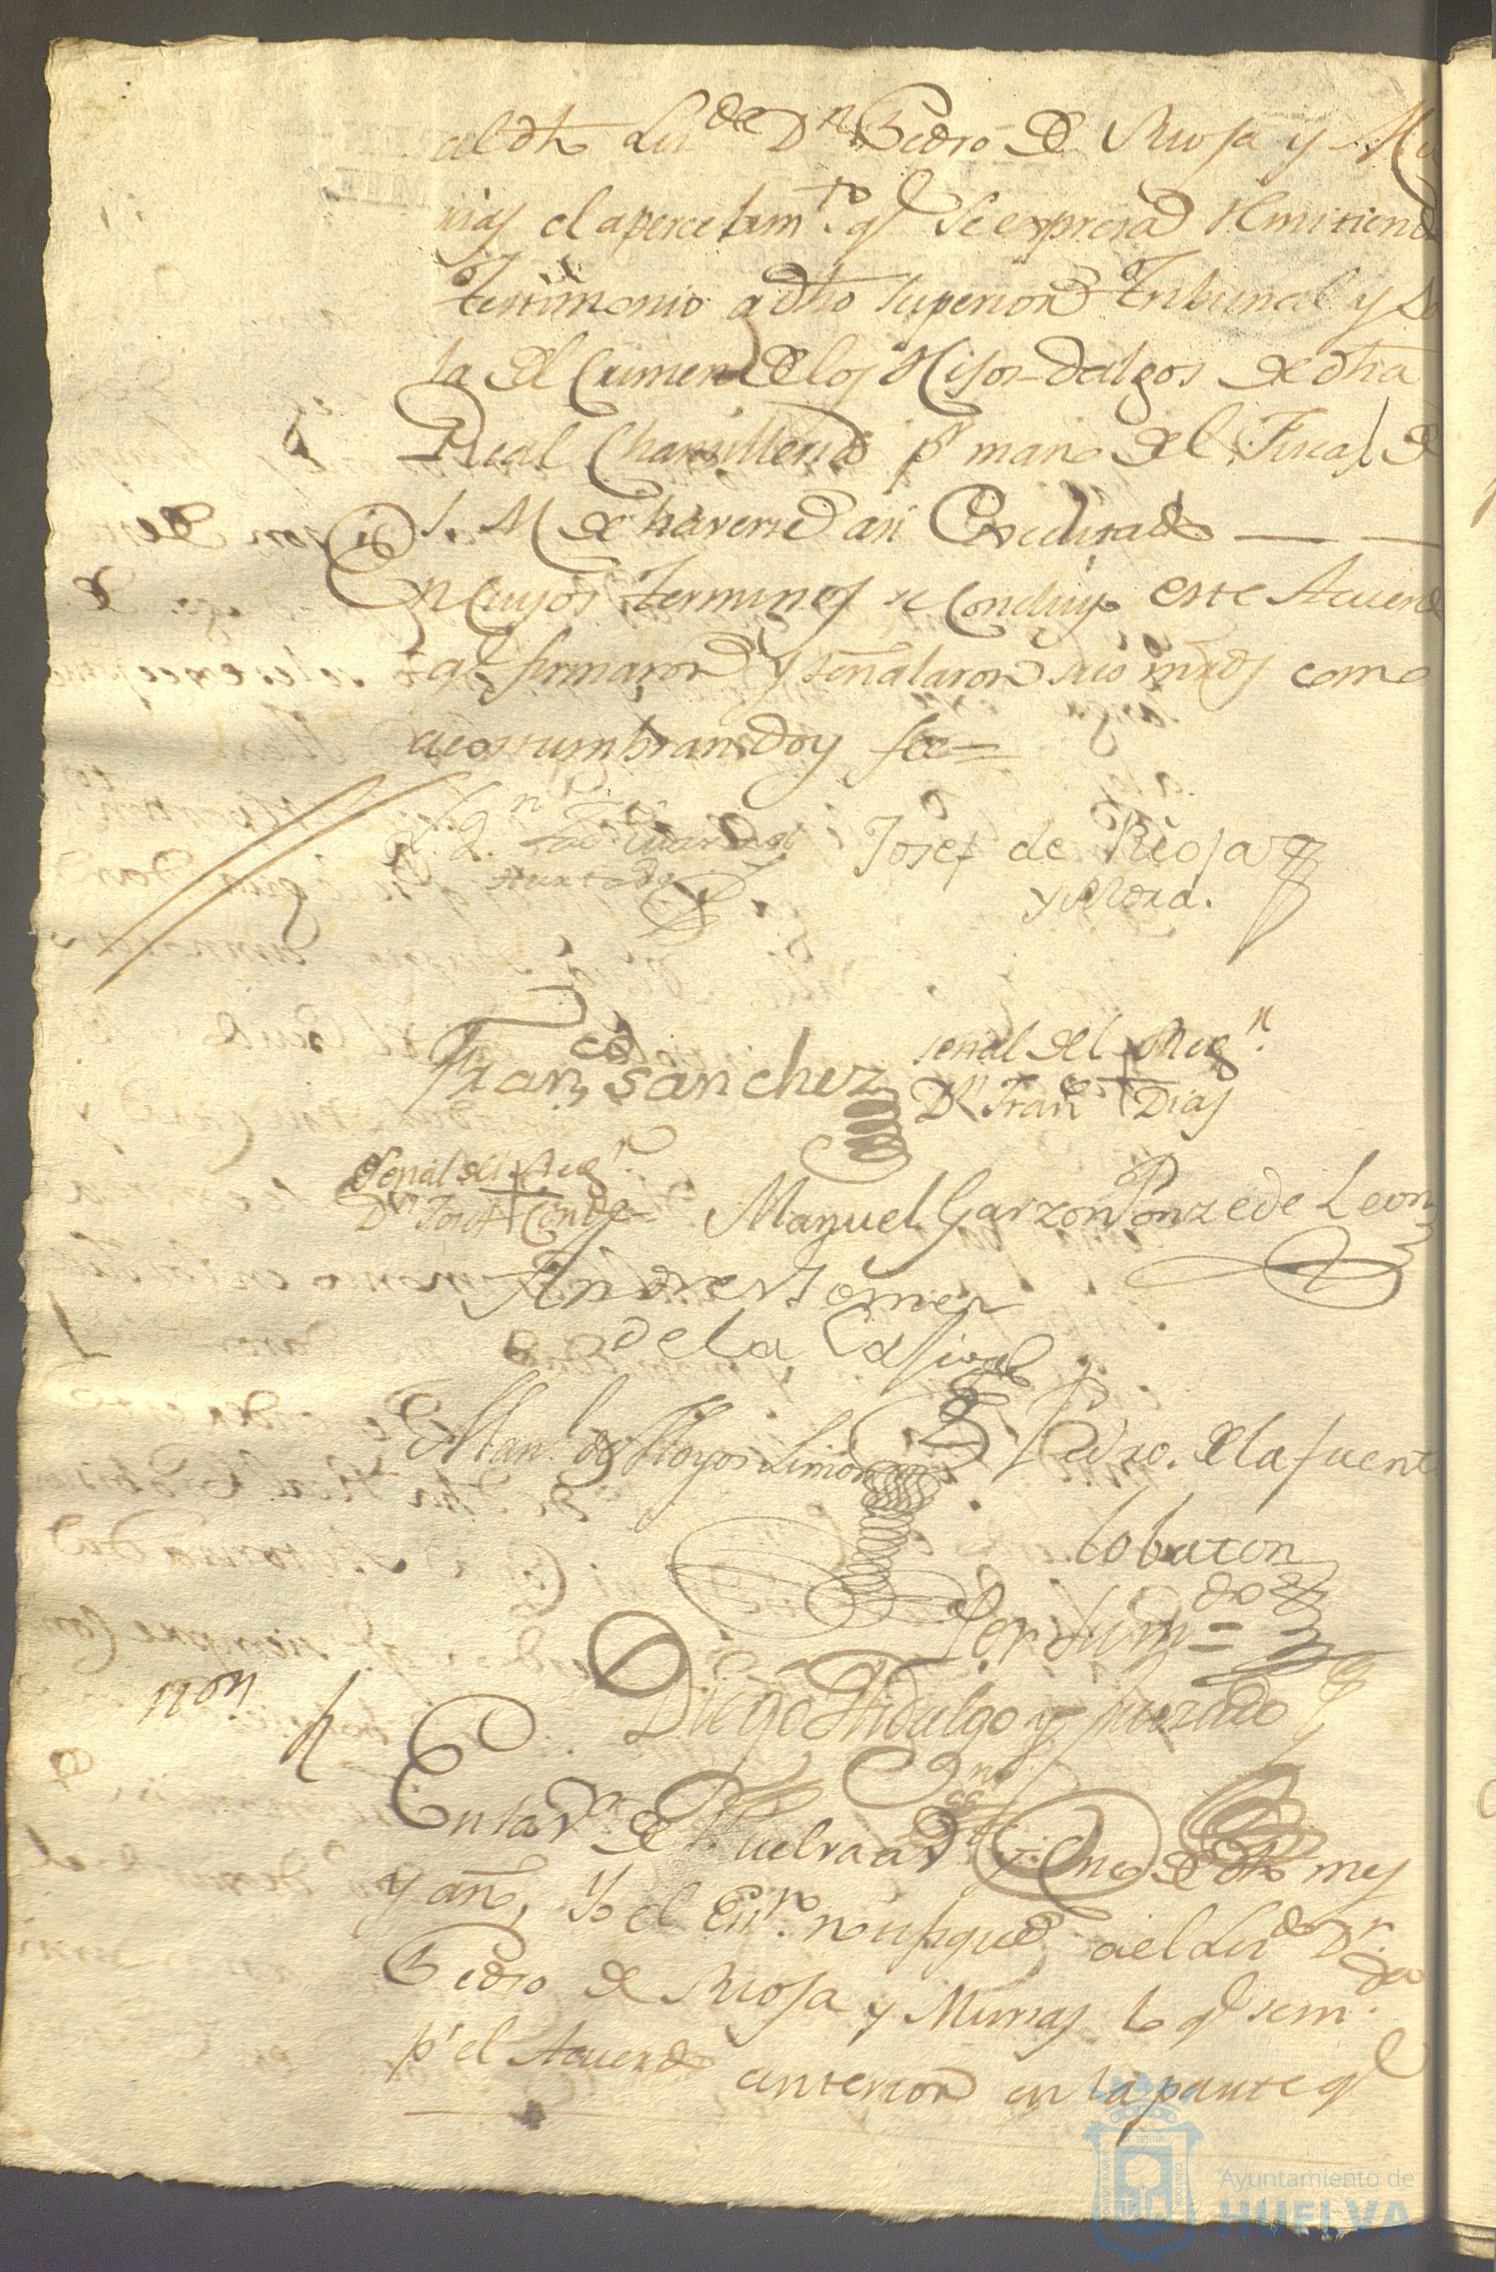 al dho Lizdo Dn Pedro de Rioja y Mu
nias el apercebimto. qe Se expresa Remitiendo
Testimonio a dho Superior Tribunal y Sa
la del Crimen de los Hijos-dalgos de dha
Real Chansilleria pr mano del Fiscal de
S. M. de haverse asi Executado
En cuyos terminos se Concluyo este Acuerdo
qe firmaron y señalaron sus mrds como
acostumbran doy fee=
Josef de Rioja
y Mora.
Franco Sanchez
señal del + Regr.
Dn Franco + Dias
Señal del + Regr.
Dn Josef + Conde
Manuel Garzon Ponze de Leon
Andres Gomez
de la
Manl. de Hoyos Limon
Pedro. de la fuente
lobaton
Per sum do =
Diego Hidalgo y
non
En la Va. de Huelva a de dho mes
y año, Yo el Essno. notifique a el Lizdo Dn.
Pedro de Rioja y Munias lo qe se mda.
pr el Acuerdo anterior en la parte qe
Ayuntamiento de
HUELVA